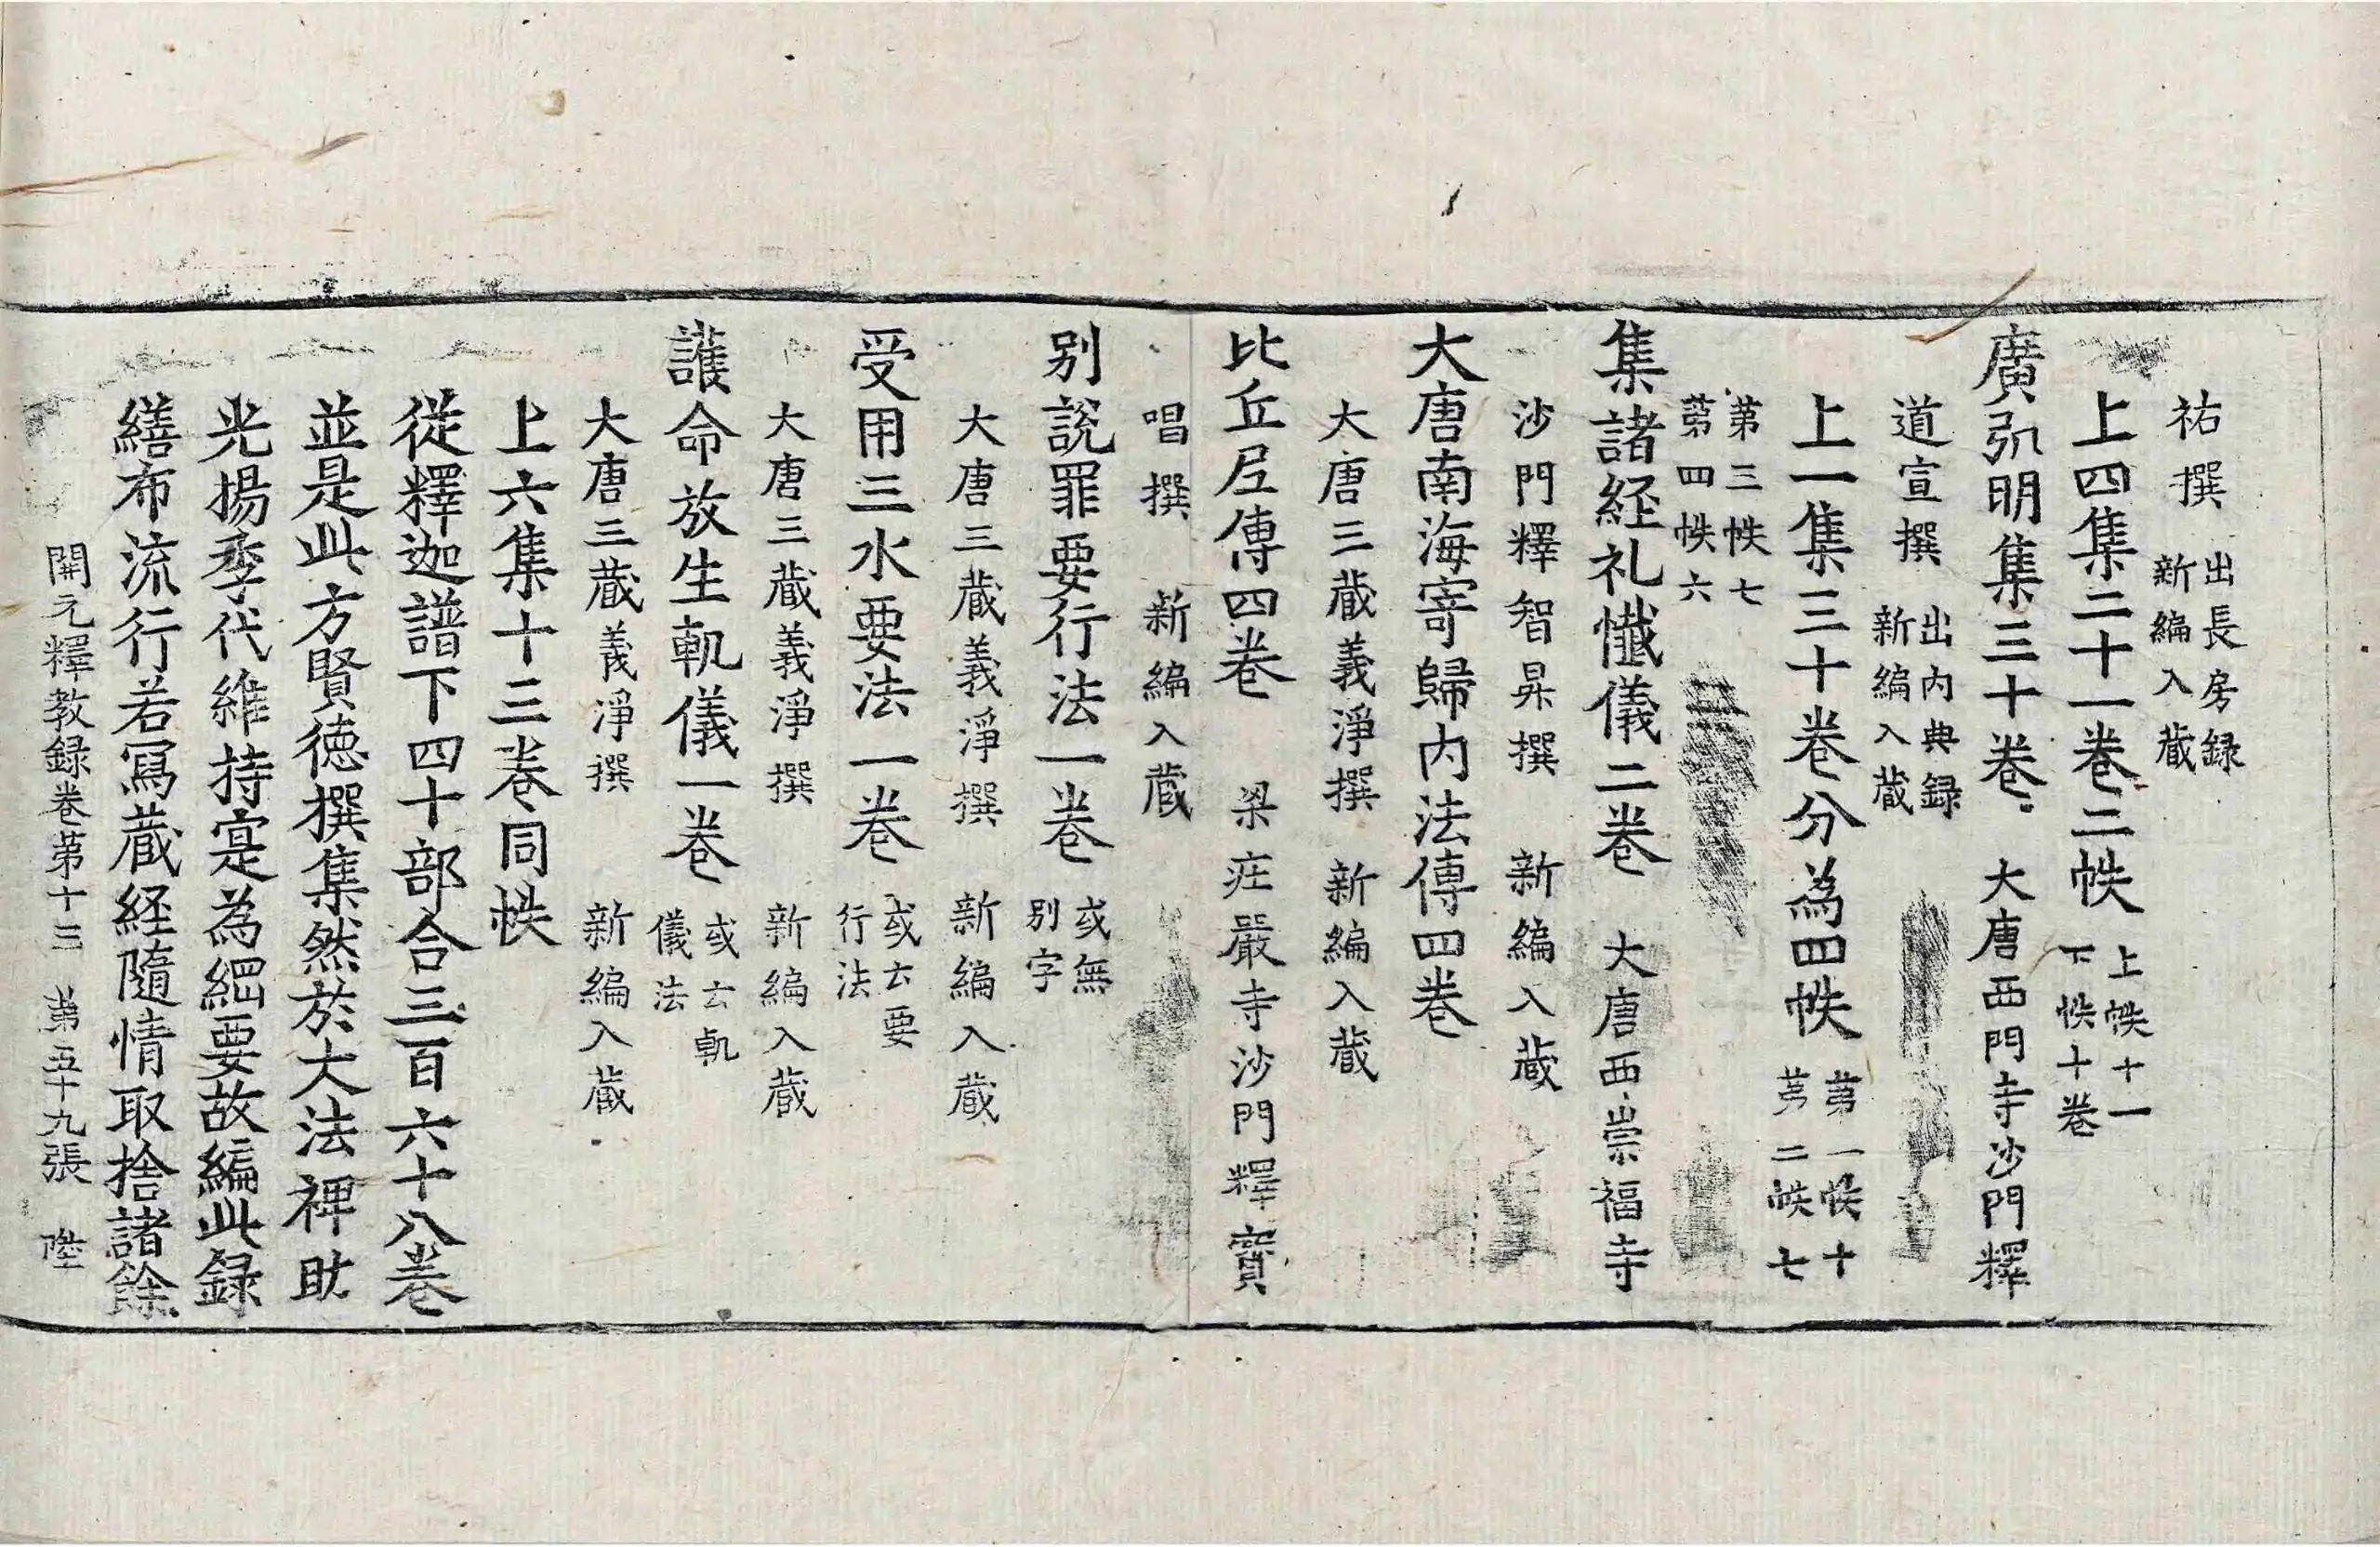 祐撰 出長房録新編入蔵
上四集二十一巻二帙 上帙十一下帙十巻
廣弘明集三十巻 大唐西門寺沙門釋
道宣撰 出内典録新編入蔵
上一集三十巻分為四帙 苐一帙十苐二帙七
苐三帙七苐四帙六
集諸経礼懺儀二巻 大唐西崇福寺
沙門釋智昇撰 新編入蔵
大唐南海寄歸内法傳四巻
大唐三蔵義淨撰 新編入蔵
比丘尼傳四巻 梁庄嚴寺沙門釋寶
唱撰 新編入蔵
别說罪要行法一巻 或無别字
大唐三蔵義淨撰 新編入蔵
受用三水要法一巻 或云要行法
大唐三蔵義淨撰 新編入蔵
護命放生軌儀一巻 或云軌儀法
大唐三蔵義淨撰 新編入蔵
上六集十三巻同帙
從釋迦譜下四十部合三百六十八巻
並是此方賢徳撰集然於大法裨助
光揚季代維持寔為綱要故編此録
繕布流行若冩蔵経隨情取捨諸餘
開元釋教録巻苐十三 苐五十九張 陞